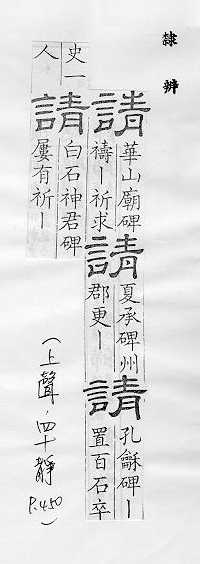 隸辨
請
華山廟碑
禱ー祈求
請
夏承碑州
郡更ー
請
孔龢碑ー
置百石卒
史一
人
請
白石神君碑
屢有祈ー
(上聲,四十靜
P.450)